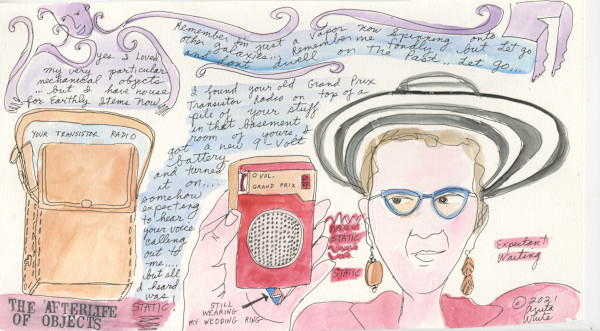 Remember I'm just a vapor now spinning onto
other galaxies... Remember me fondly.. but Let go
and don't dwell on the Past.. Let go...
yes I Loved
my very particular
mechanical objects
... but I have no use
for Earthly Items now
I found your old Grand Prix
Transistor Radio on top of a
pile of your stuff
in that basement
room of yours. I
got a new 9-Volt
battery
and turned
it on....
somehow
expecting
to hear
your voice
calling
out to
me....
but all
I heard
was!
STATIC.
YOUR TRANSISTOR RADIO
VOL.
GRAND PRIX
STATIC
STATIC
STILL
WEARING
MY WEDDING RING
Expectant
Waiting
THE AFTERLIFE
OF OBJECTS
© 2021
Anita
White